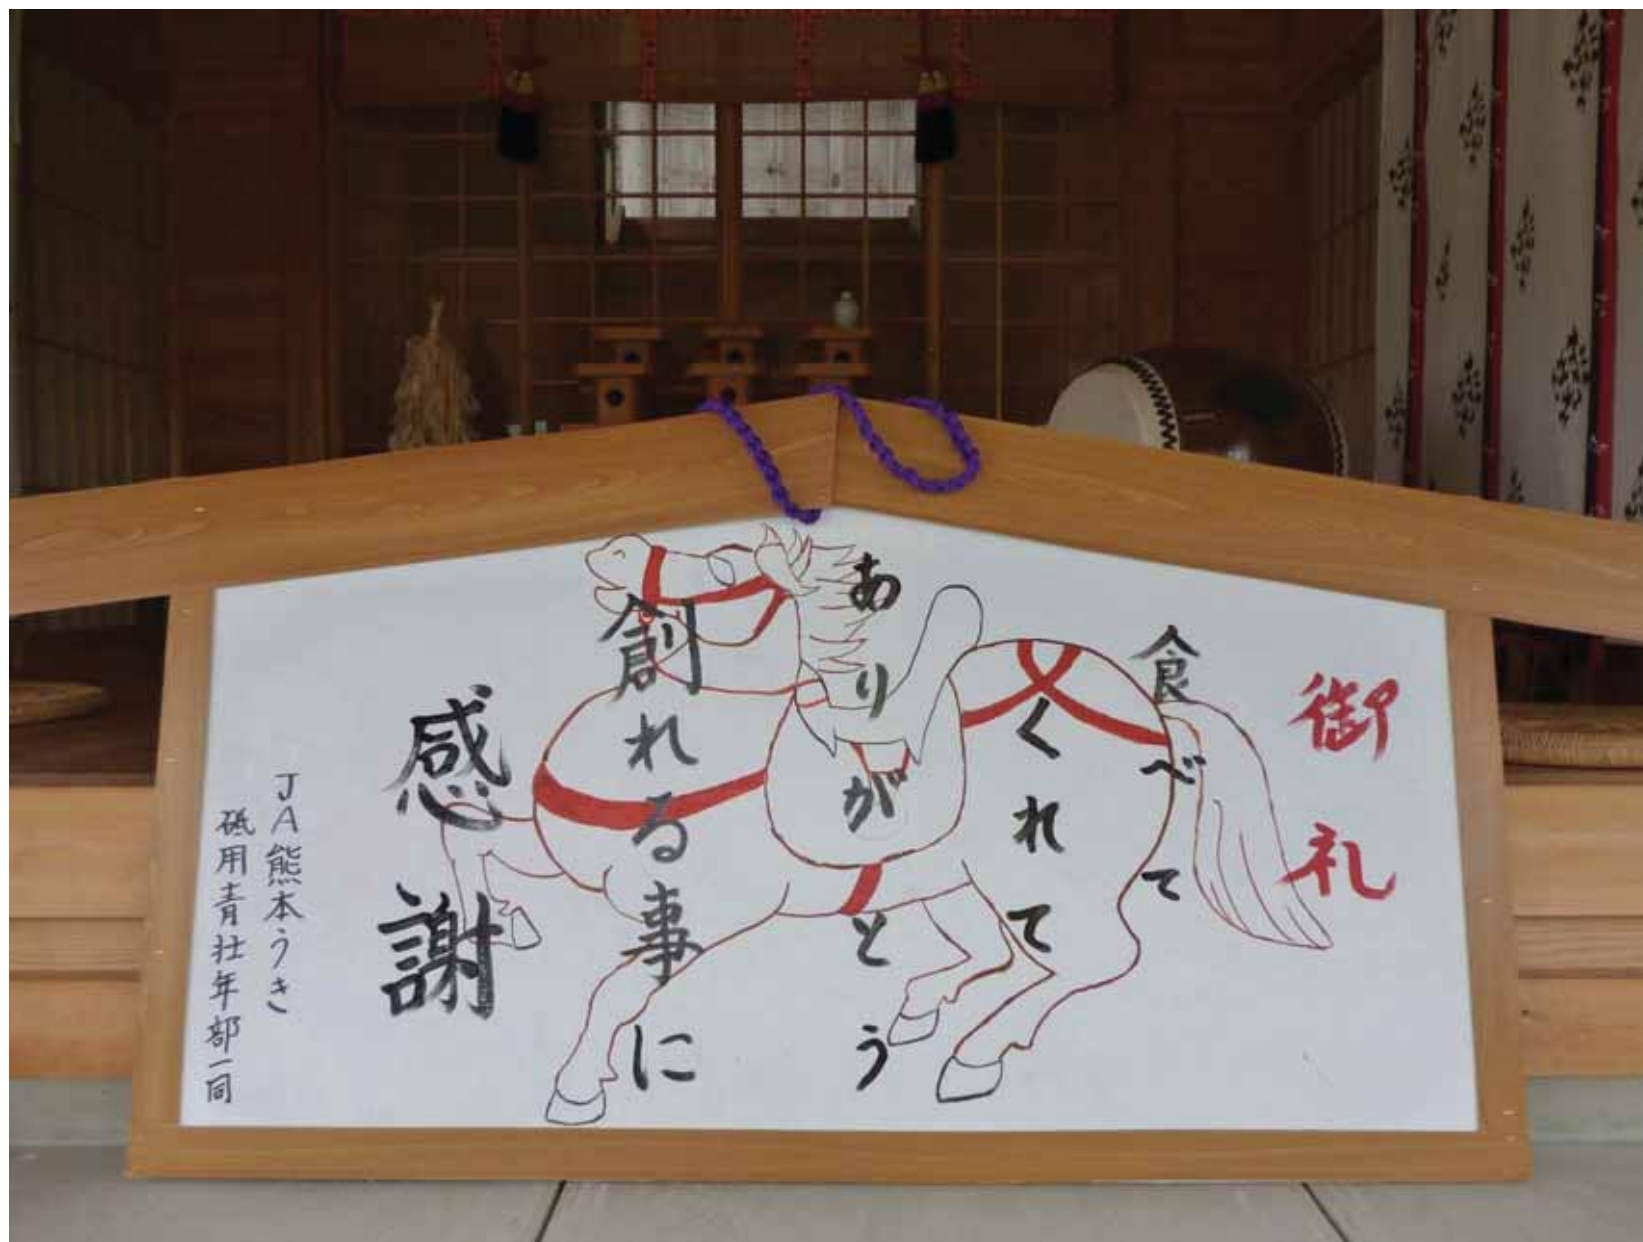 御礼
食べて
くれて
ありがとう
創れる事に
感謝
JA熊本うき
砥用青壮年部一同